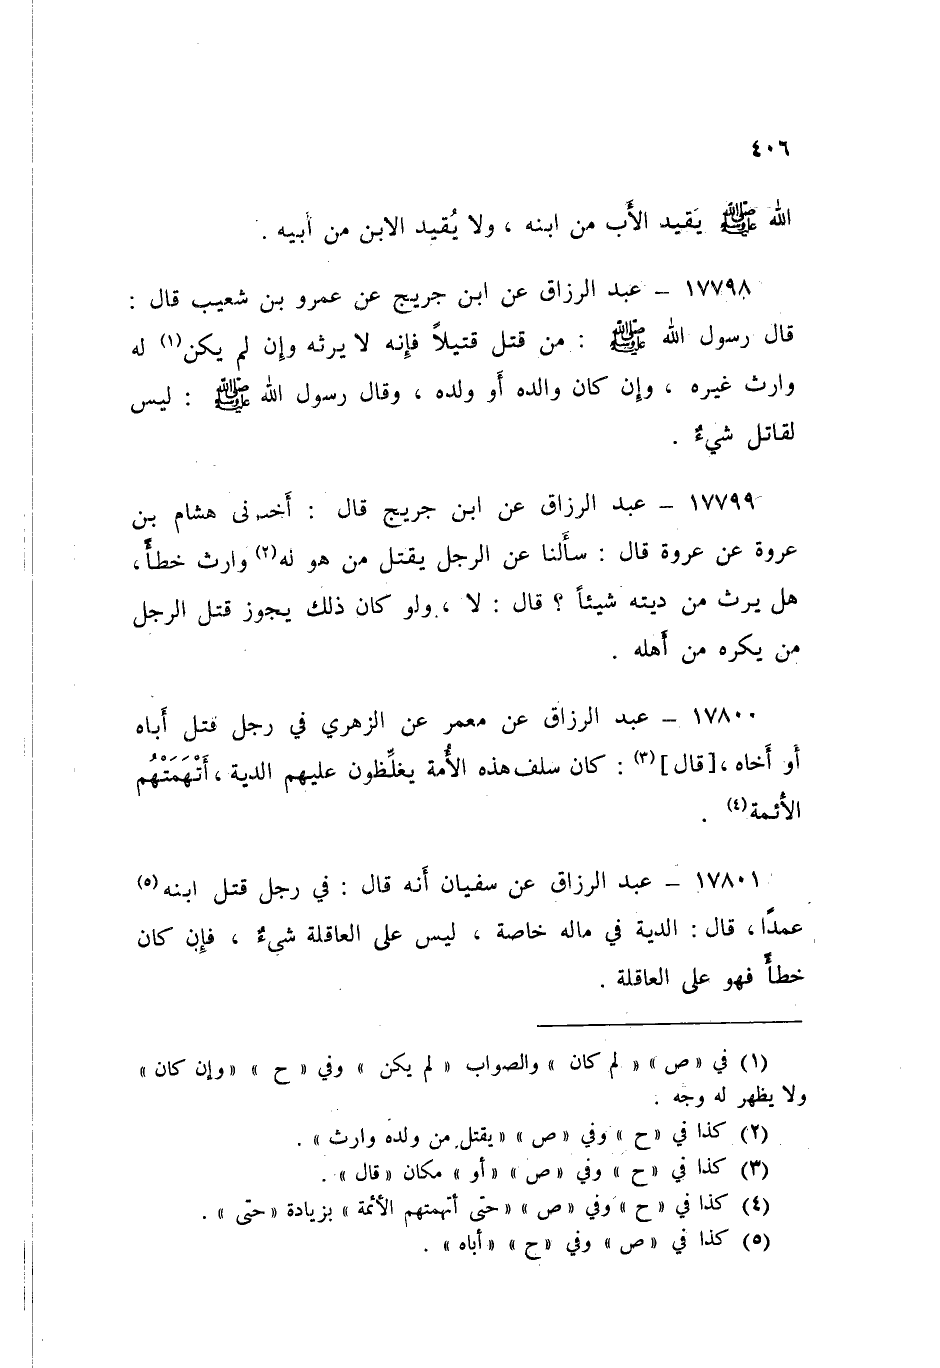 ٤٠٦
الله ﷺ يَقيد الأَب من ابنه ، ولا يُقيد الابن من أبيه .
١٧٧٩٨ – عبد الرزاق عن ابن جريج عن عمرو بن شعيب قال :
قال رسول الله ﷺ : من قتل قتيلاً فإنه لا يرثه وإن لم يكن(١) له
وارث غيره ، وإن كان والده أو ولده ، وقال رسول الله ﷺ : ليس
لقاتل شيءٌ .
١٧٧٩٩ – عبد الرزاق عن ابن جريج قال : أَخبرني هشام بن
عروة عن عروة قال : سأَلنا عن الرجل يقتل من هو له(٢) وارث خطأً ،
هل يرث من ديته شيئاً ؟ قال : لا ، ولو كان ذلك يجوز قتل الرجل
من يكره من أَهله .
١٧٨٠٠ – عبد الرزاق عن معمر عن الزهري في رجل قتل أَباه
أو أَخاه ، [قال](٣) : كان سلف هذه الأُمة يغلِّظون عليهم الدية ، أَتْهَمَتْهُم
الأَئمة(٤) .
١٧٨٠١ – عبد الرزاق عن سفيان أَنه قال : في رجل قتل ابنه(٥)
عمدًا ، قال : الدية في ماله خاصة ، ليس على العاقلة شيءٌ ، فإن كان
خطأً فهو على العاقلة .
(١) في « ص » « لم كان » والصواب « لم يكن » وفي « ح » « وإن كان »
ولا يظهر له وجه .
(٢) كذا في « ح » وفي « ص » « يقتل من ولده وارث » .
(٣) كذا في « ح » وفي « ص » « أو » مكان « قال » .
(٤) كذا في « ح » وفي « ص » « حتى أتهمتهم الأئمة » بزيادة « حتى » .
(٥) كذا في « ص » وفي « ح » « أباه » .